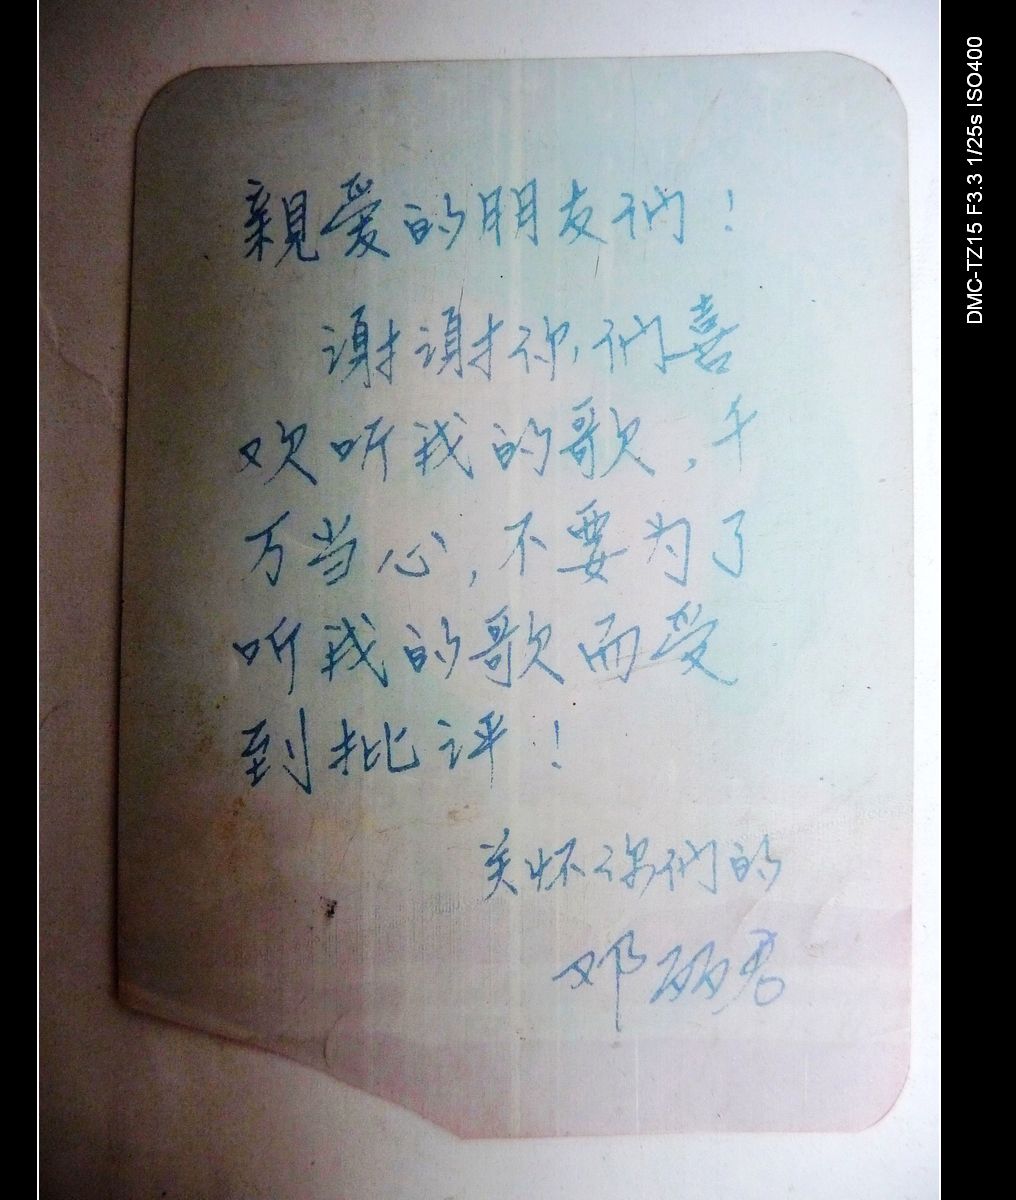 親爱的朋友们！
谢谢你们喜
欢听我的歌，千
万当心，不要为了
听我的歌而受
到批评！
关怀你们的
邓丽君
DMC-TZ15 F3.3 1/25s ISO400